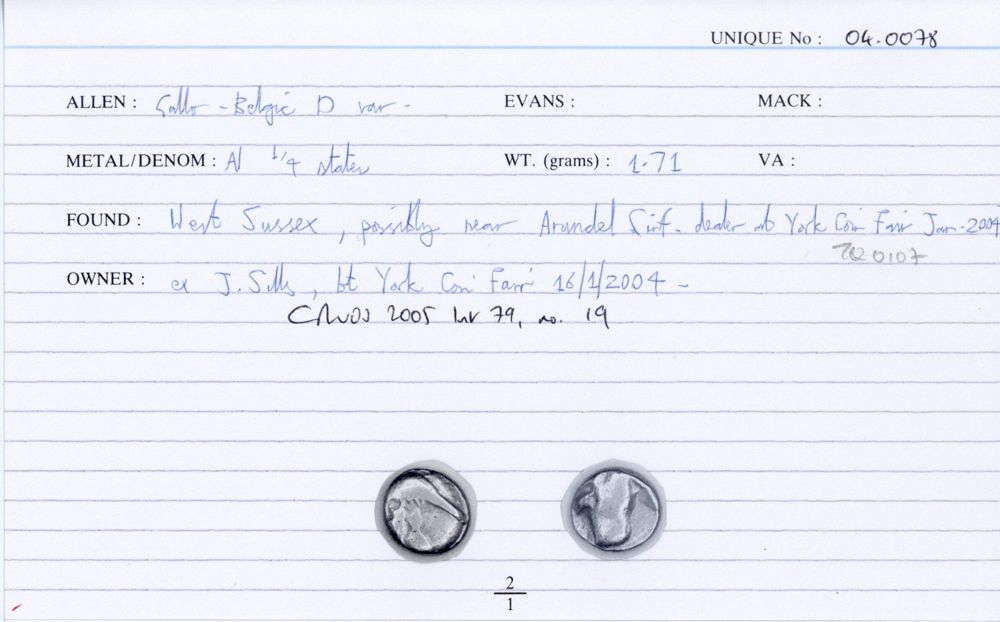 UNIQUE No : 04.0078
ALLEN : Gallo-Belgic D var. EVANS : MACK :
METAL/DENOM : AV 1/4 stater WT. (grams) : 1.71 VA :
FOUND : West Sussex, possibly near Arundel (inf. dealer at York Coin Fair Jan. 2004
TQ 0107
OWNER : ex J. Sills, bt York Coin Fair 16/1/2004 -
2005 79, no. 19
2
1